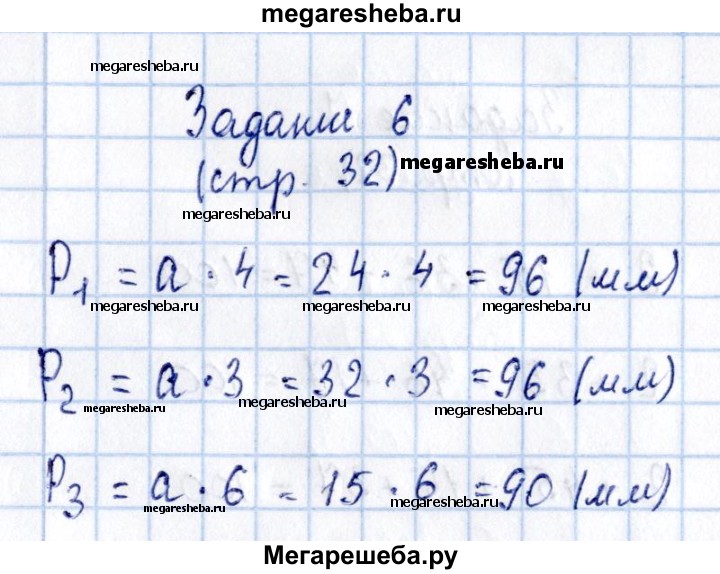 megaresheba.ru
megaresheba.ru
Задание 6
(стр. 32) megaresheba.ru
megaresheba.ru
P₁ = a · 4 = 24 · 4 = 96 (мм)
megaresheba.ru megaresheba.ru megaresheba.ru
P₂ = a · 3 = 32 · 3 = 96 (мм)
megaresheba.ru megaresheba.ru megaresheba.ru
P₃ = a · 6 = 15 · 6 = 90 (мм)
megaresheba.ru megaresheba.ru
Мегарешеба.ру